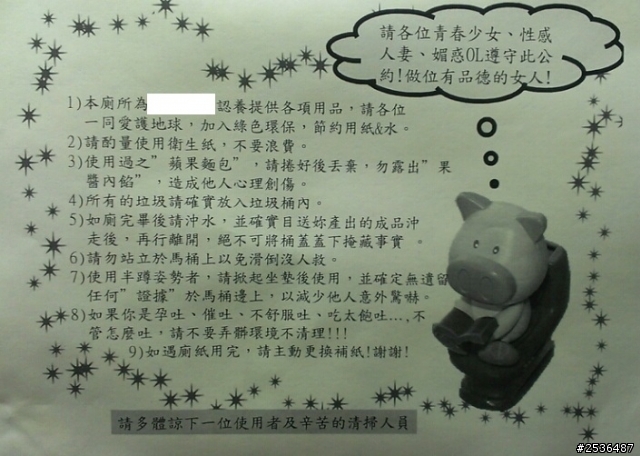 請各位青春少女、性感
人妻、媚惑OL遵守此公
約!做位有品德的女人!
1)本廁所為 認養提供各項用品，請各位
一同愛護地球，加入綠色環保，節約用紙&水。
2)請酌量使用衛生紙，不要浪費。
3)使用過之”蘋果麵包”，請捲好後丟棄，勿露出”果
醬內餡”，造成他人心理創傷。
4)所有的垃圾請確實放入垃圾桶內。
5)如廁完畢後請沖水，並確實目送妳產出的成品沖
走後，再行離開，絕不可將桶蓋蓋下掩藏事實 。
6)請勿站立於馬桶上以免滑倒沒人救。
7)使用半蹲姿勢者，請掀起坐墊後使用，並確定無遺留
任何”證據”於馬桶邊上，以減少他人意外驚嚇。
8)如果你是孕吐、催吐、不舒服吐、吃太飽吐...,不
管怎麼吐，請不要弄髒環境不清理!!!
9)如遇廁紙用完，請主動更換補紙!謝謝!
請多體諒下一位使用者及辛苦的清掃人員
#2536487